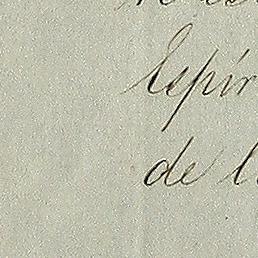 Espír
de l